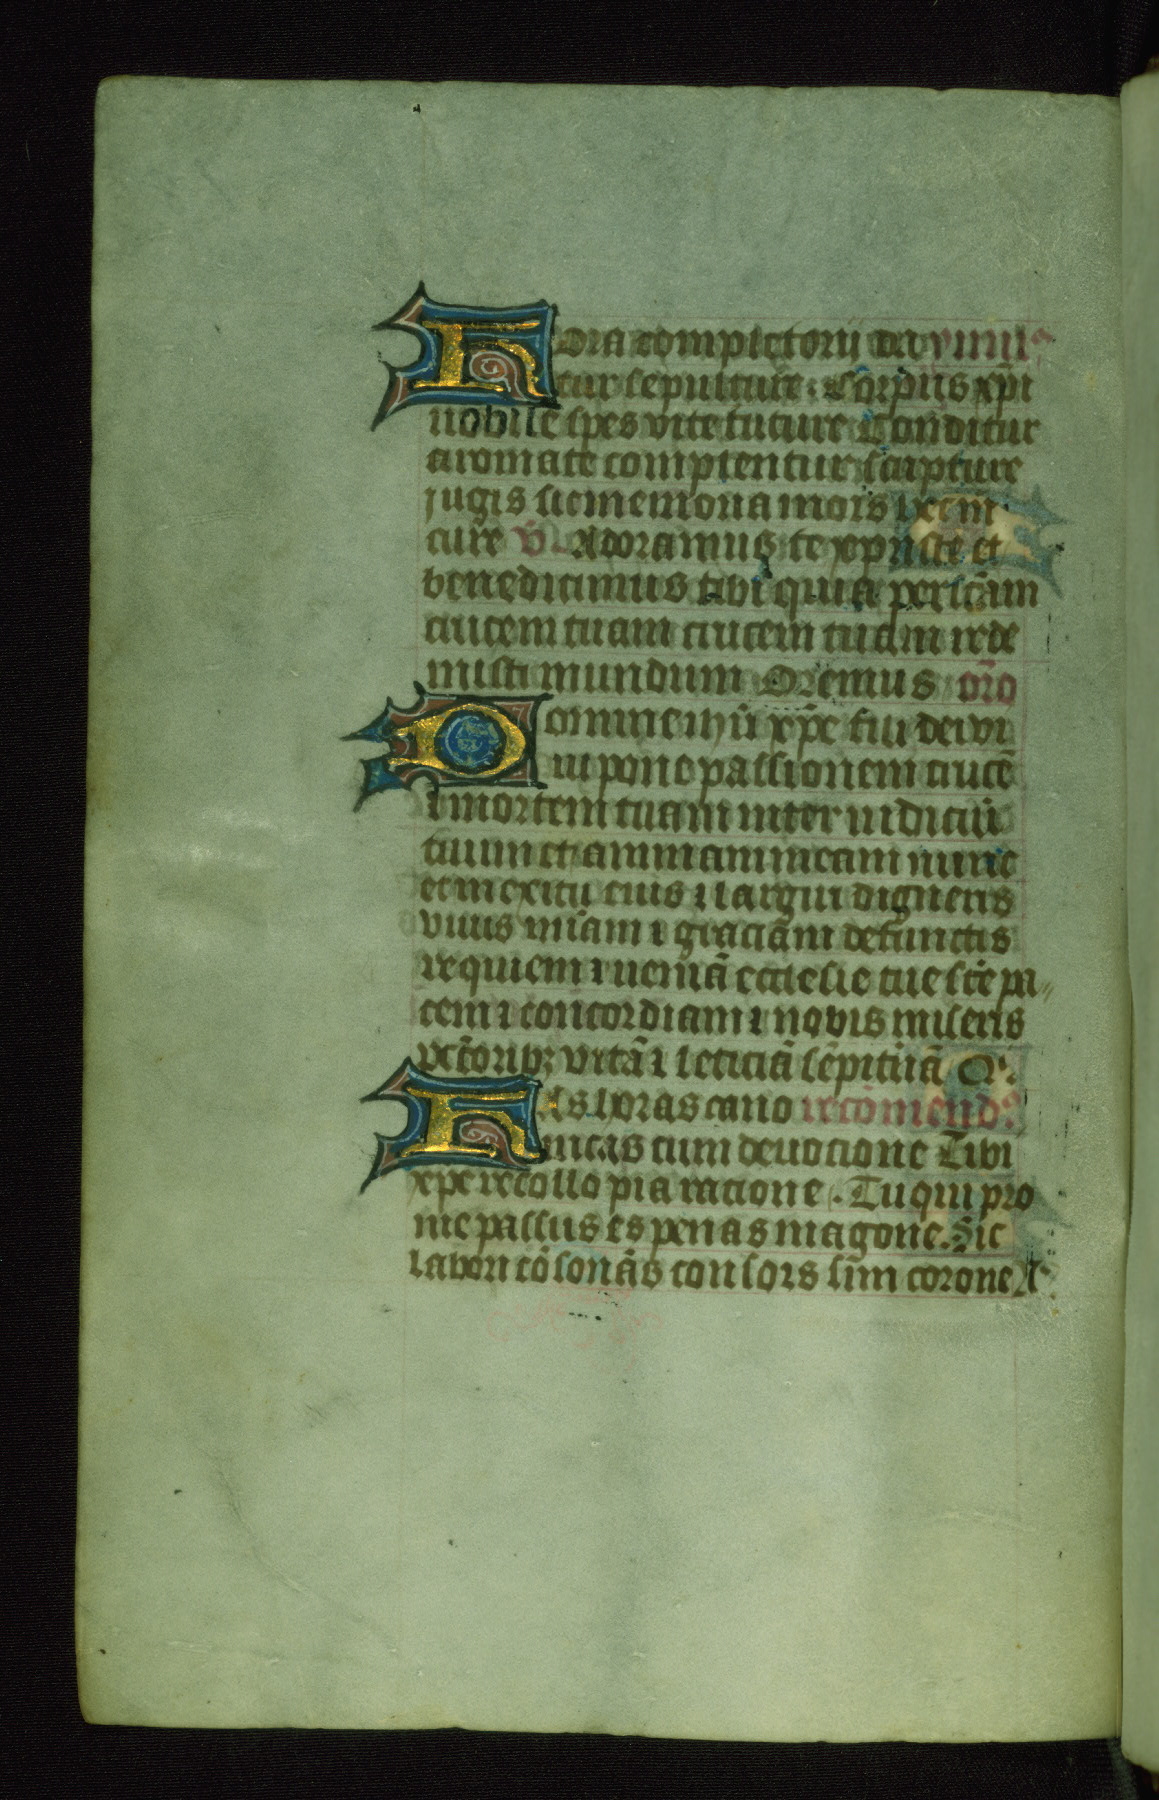 Hora completorij dr̄ ymnus
tur sepulture. Corpus xp̄i
nobile spes vite future Conditur
aromate complentur scripture
jugis sit memoria mors
cure v̄. Adoramus te xp̄riste et
benedicimus tibi quia per sc̄am
crucem tuam crucem tuam rede
misti mundum Oremus or̄o
Domine ih̄u xp̄e fili dei vi
ui pone passionem crucē
⁊ mortem tuam inter iudiciū
tuum et animam meam nunc
et in exitu eius ⁊ largiri digneris
viuis mīam ⁊ graciam defunctis
requiem ⁊ ueniā ecclesie tue sc̄e pa
cem ⁊ concordiam ⁊ nobis miseris
pc̄toribꝫ vitā ⁊ leticiā sēpitnā Q
Has horas cano recōmend
nicas cum deuocione Tibi
xp̄e recollo pia racione. Tu qui pro
me passus es penas in agone. Sic
labori cōsonās consors sim corone A